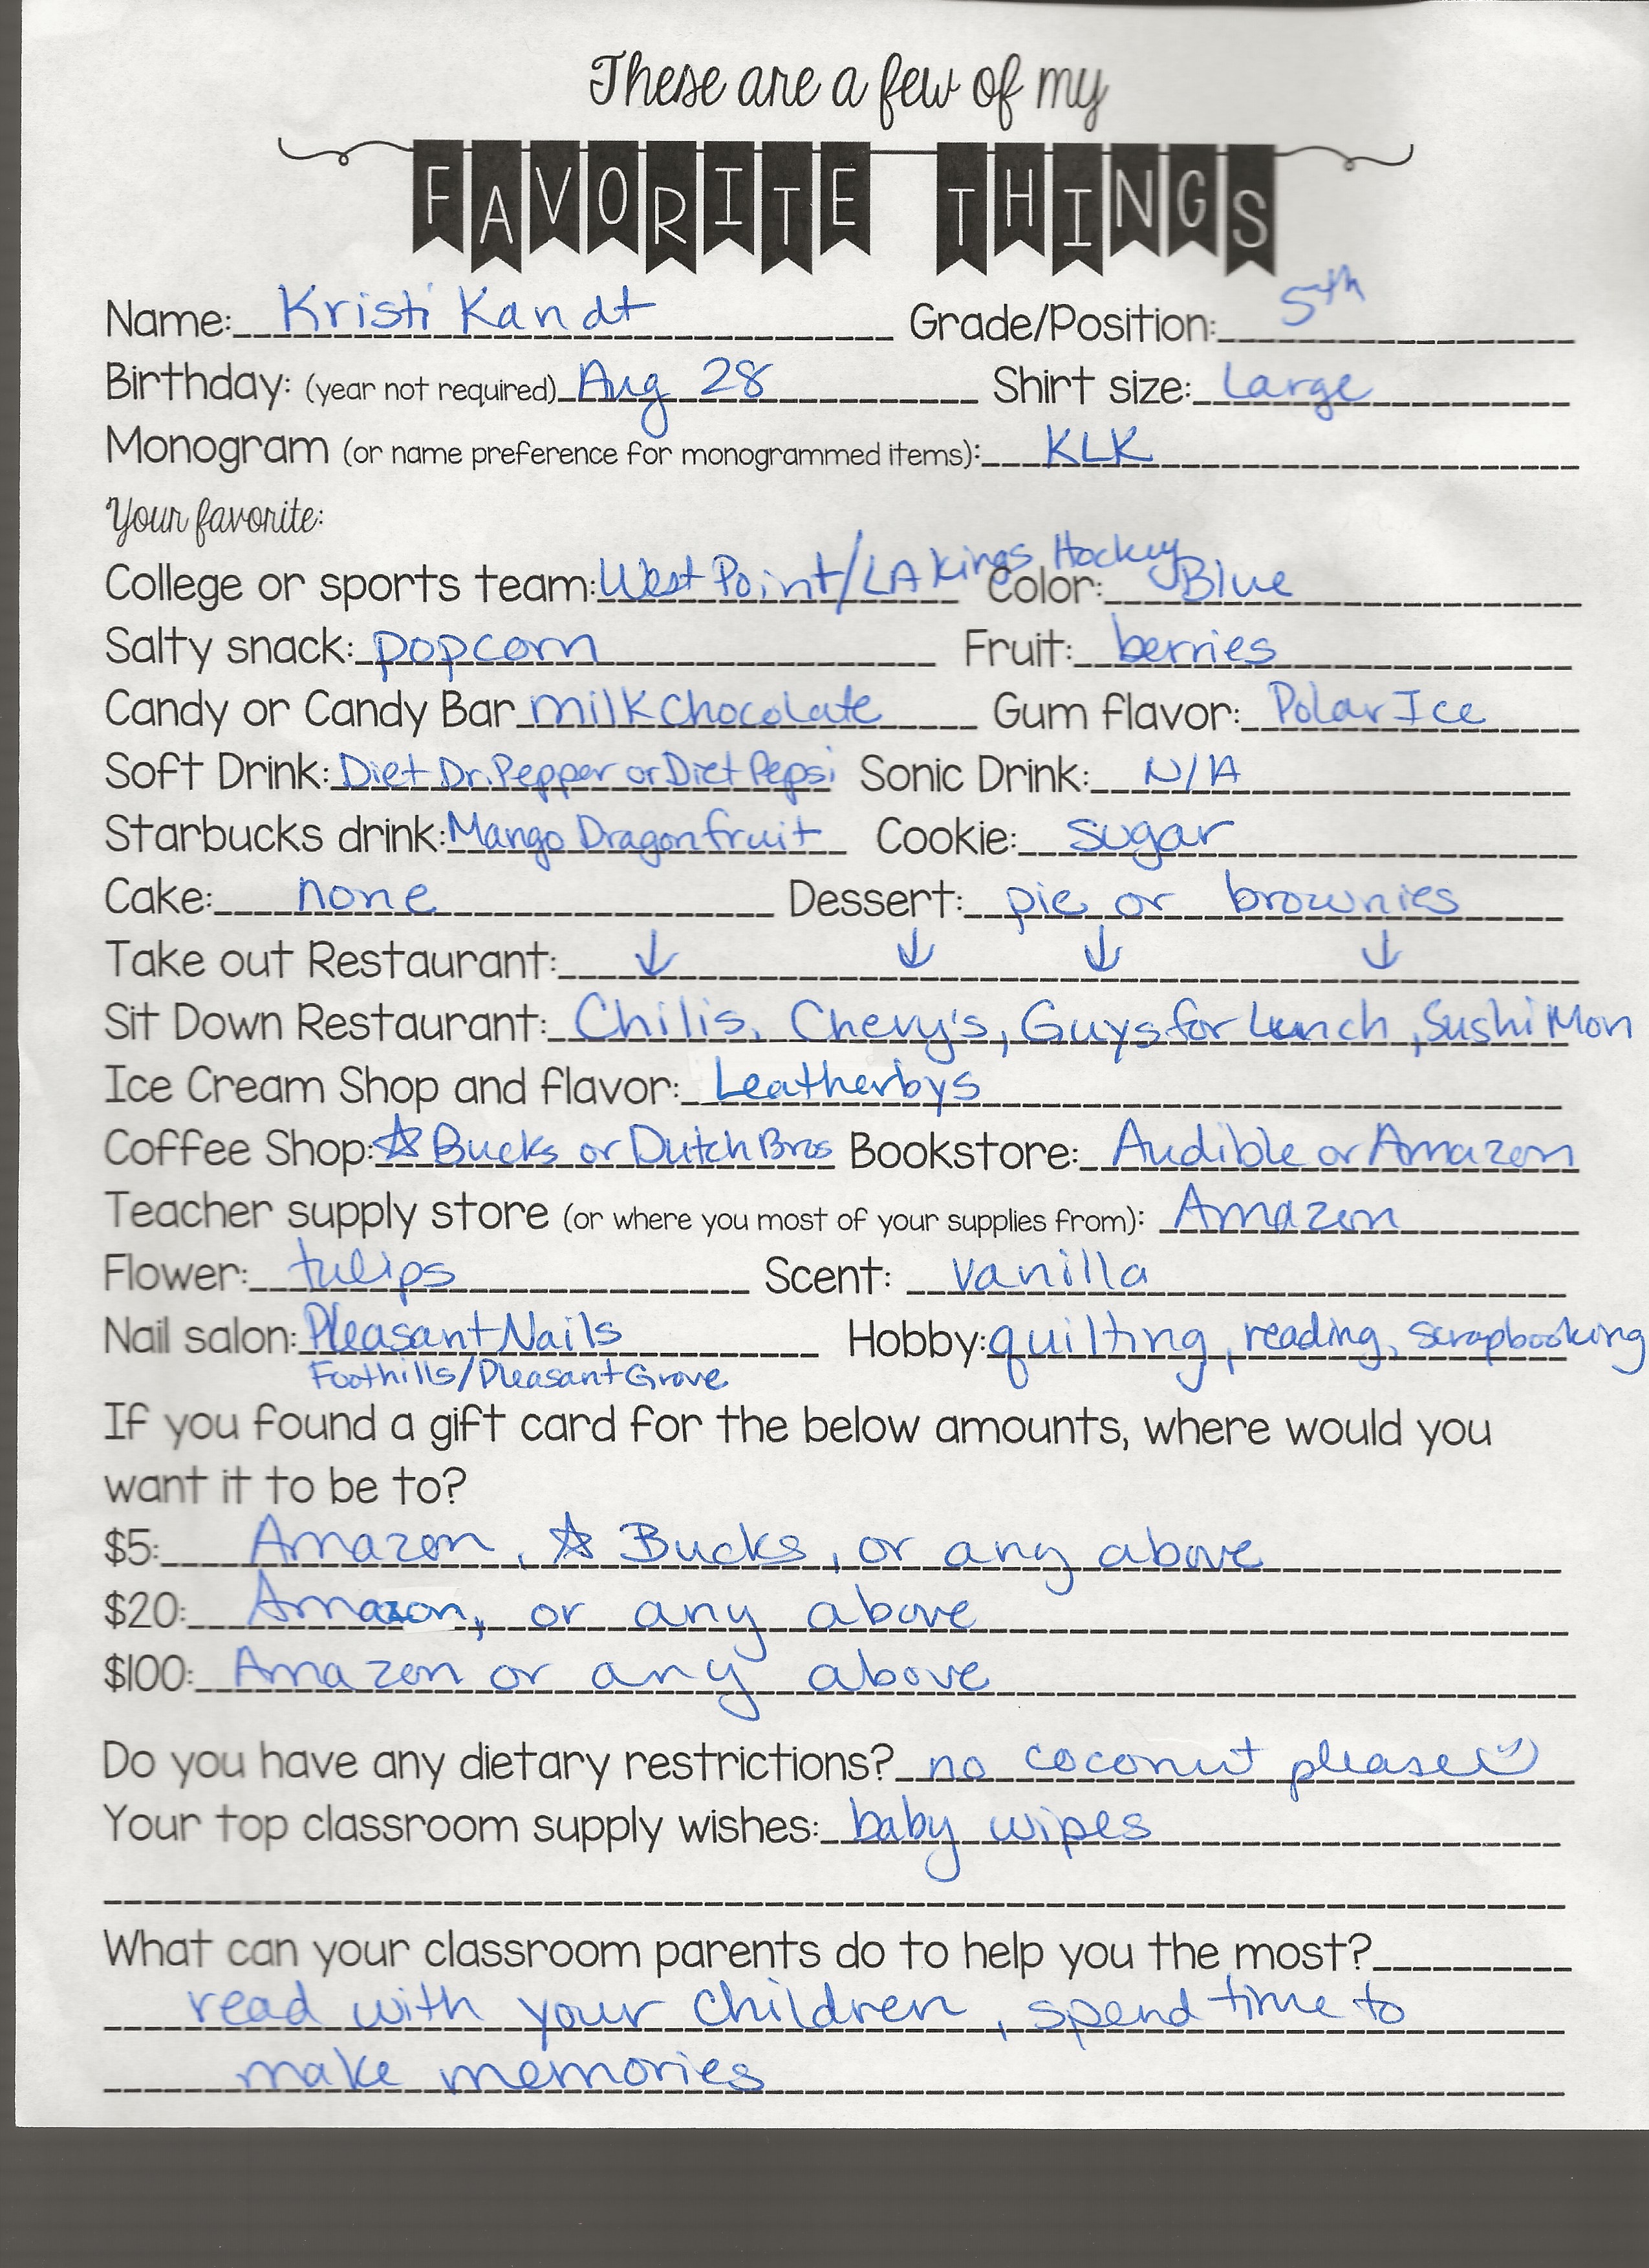 These are a few of my
FAVORITE THINGS
Name: Kristi Kandt Grade/Position: 5th
Birthday: (year not required) Aug 28 Shirt size: Large
Monogram (or name preference for monogrammed items): KLK
Your favorite:
College or sports team: West Point/LA Kings Hockey Color: Blue
Salty snack: popcorn Fruit: berries
Candy or Candy Bar milk Chocolate Gum flavor: Polar Ice
Soft Drink: Diet Dr. Pepper or Diet Pepsi Sonic Drink: N/A
Starbucks drink: Mango Dragonfruit Cookie: sugar
Cake: none Dessert: pie or brownies
Take out Restaurant: ↓ ↓ ↓ ↓
Sit Down Restaurant: Chilis, Chevy's, Guys for Lunch, Sushi Mon
Ice Cream Shop and flavor: Leatherbys
Coffee Shop: ☆Bucks or Dutch Bros Bookstore: Audible or Amazon
Teacher supply store (or where you most of your supplies from): Amazon
Flower: tulips Scent: vanilla
Nail salon: Pleasant Nails Hobby: quilting, reading, scrapbooking
Foothills/Pleasant Grove
If you found a gift card for the below amounts, where would you
want it to be to?
$5: Amazon, ☆ Bucks, or any above
$20: Amazon, or any above
$100: Amazon or any above
Do you have any dietary restrictions? no coconut please
Your top classroom supply wishes: baby wipes
What can your classroom parents do to help you the most?
read with your children, spend time to
make memories